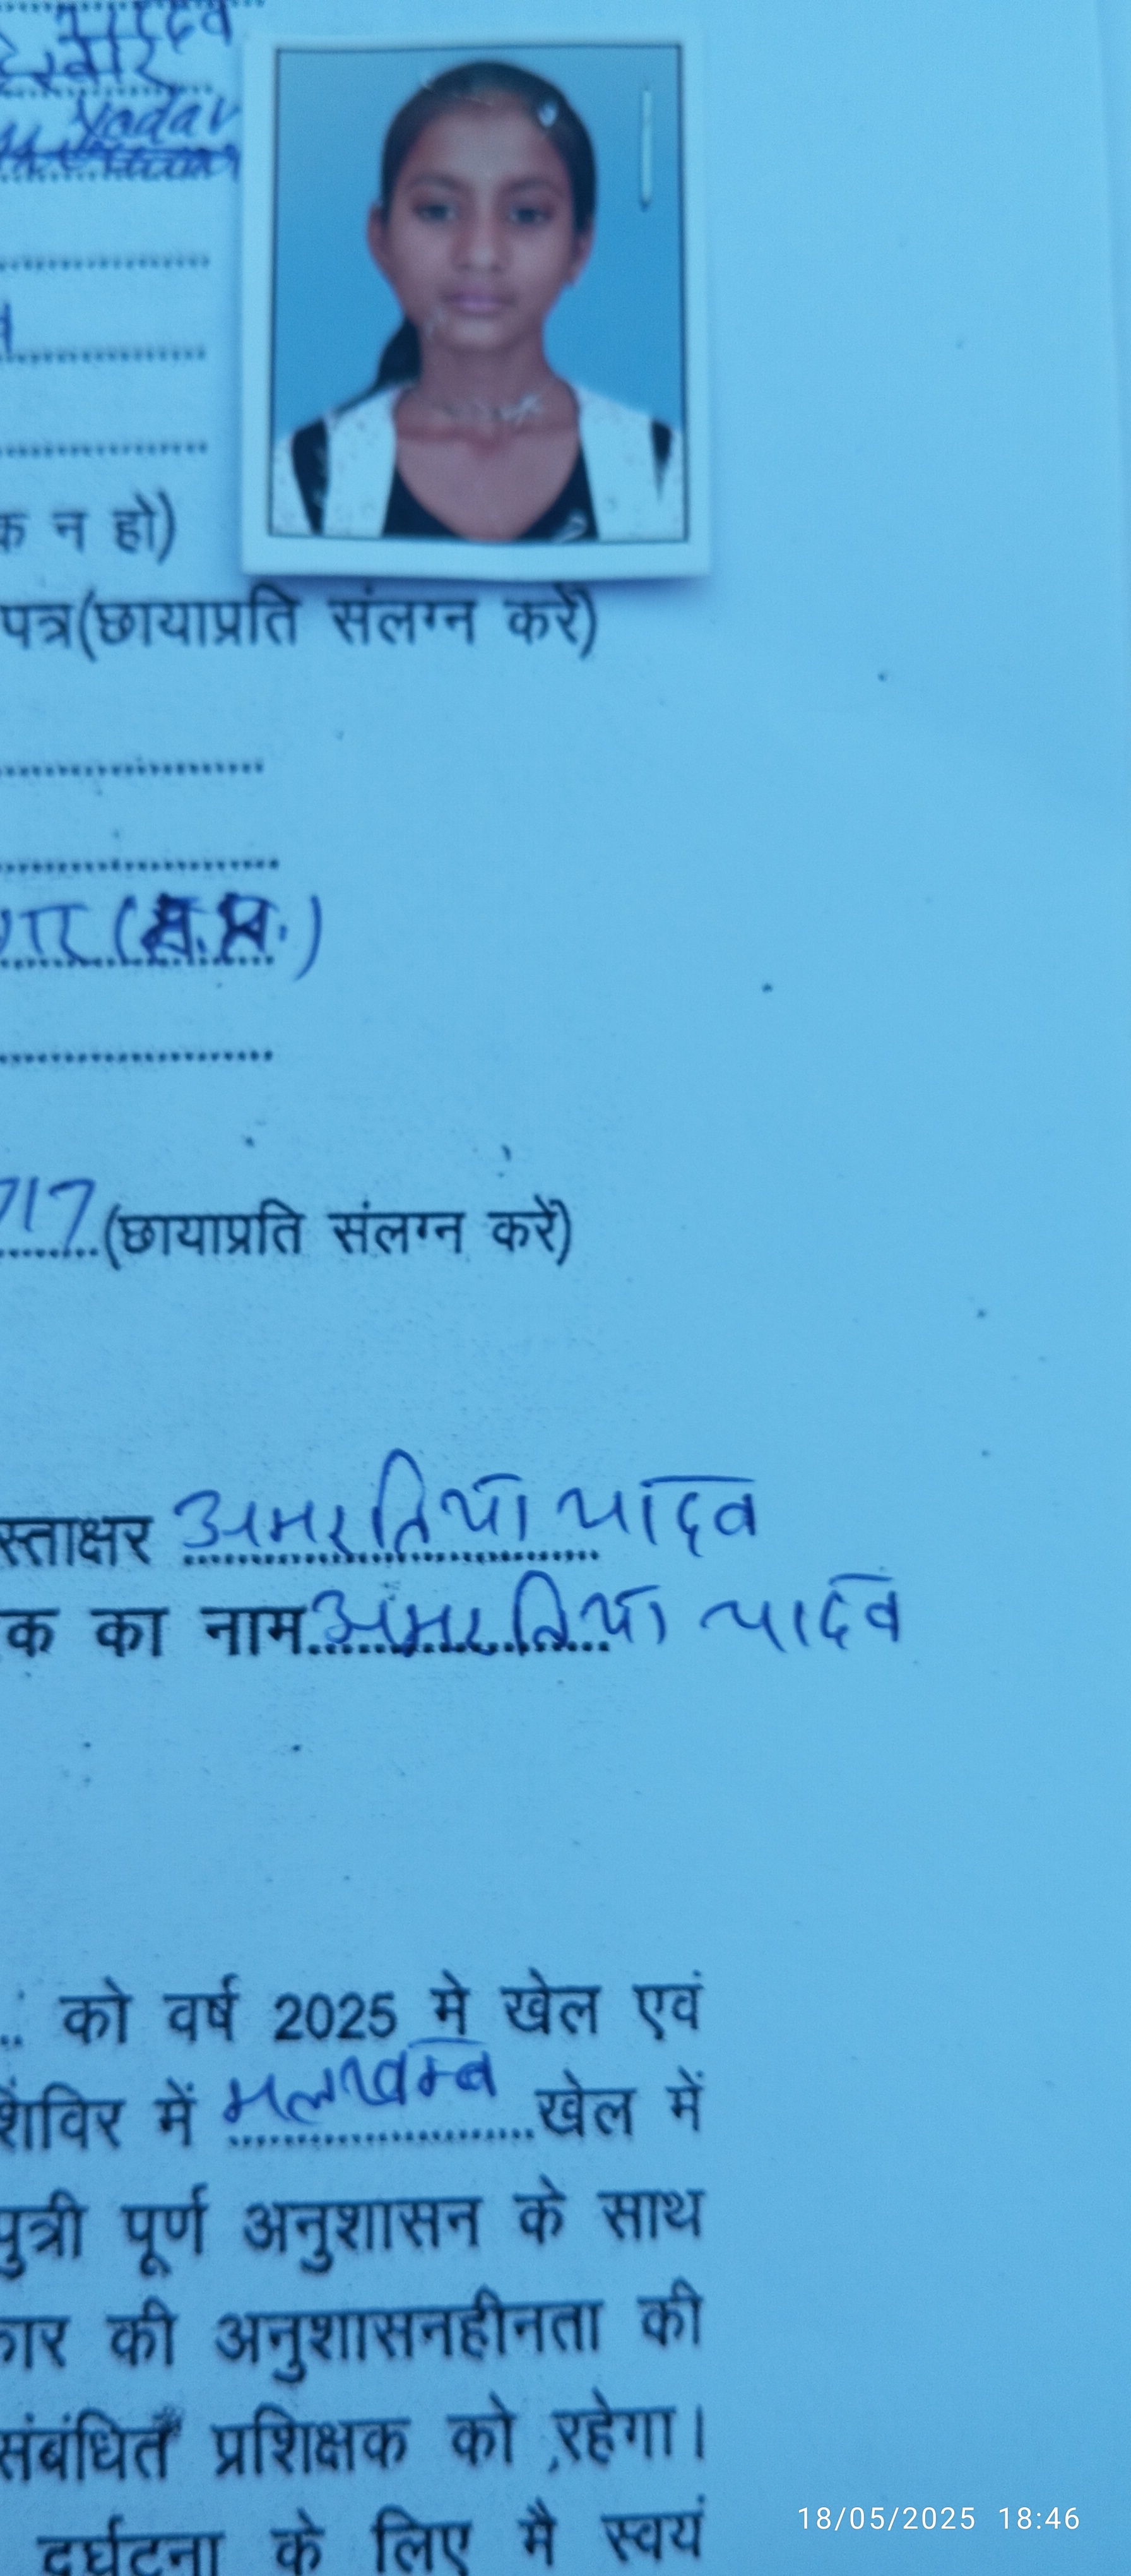 यादव
Yadav
क न हो)
पत्र(छायाप्रति संलग्न करें)
717 (छायाप्रति संलग्न करें)
स्ताक्षर अमरतिया यादव
क का नाम अमरतिया यादव
को वर्ष 2025 मे खेल एवं
शिविर में मलखम्ब खेल में
पुत्री पूर्ण अनुशासन के साथ
कार की अनुशासनहीनता की
संबंधित प्रशिक्षक को रहेगा।
दुर्घटना के लिए मै स्वयं
18/05/2025 18:46